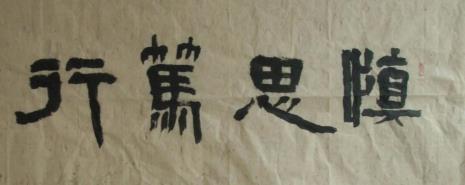 慎思篤行